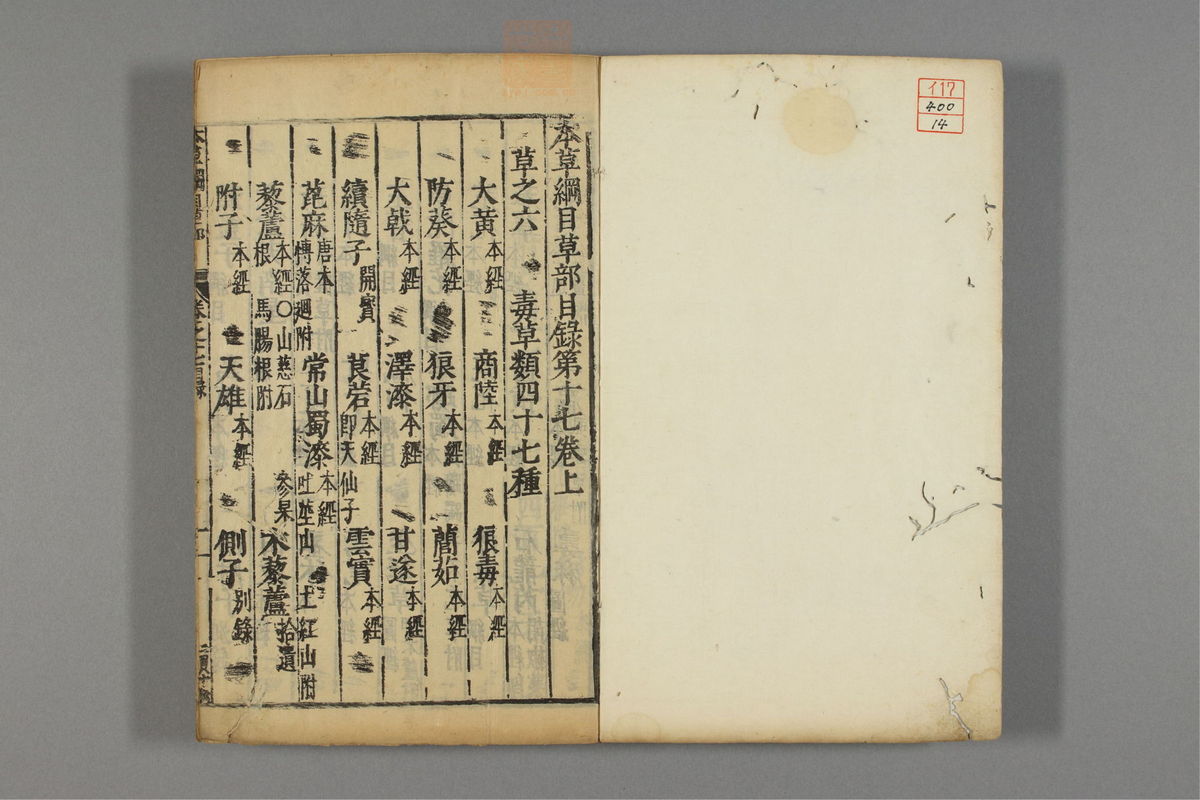 イ17
400
14
本草綱目草部目錄第十七卷上
草之六 毒草類四十七種
大黄本經 商陸本經 狼毒本經
防葵本經 狼牙本經 䕡茹本經
大戟本經 澤漆本經 甘遂本經
續隨子開寶 莨菪本經即天仙子 雲實本經
蓖麻唐本慱落廻附 常山蜀漆本經 土紅山附
藜蘆本經〇山慈石 參果根 馬腸根附 木藜蘆拾遺
附子本經 天雄本經 側子別錄